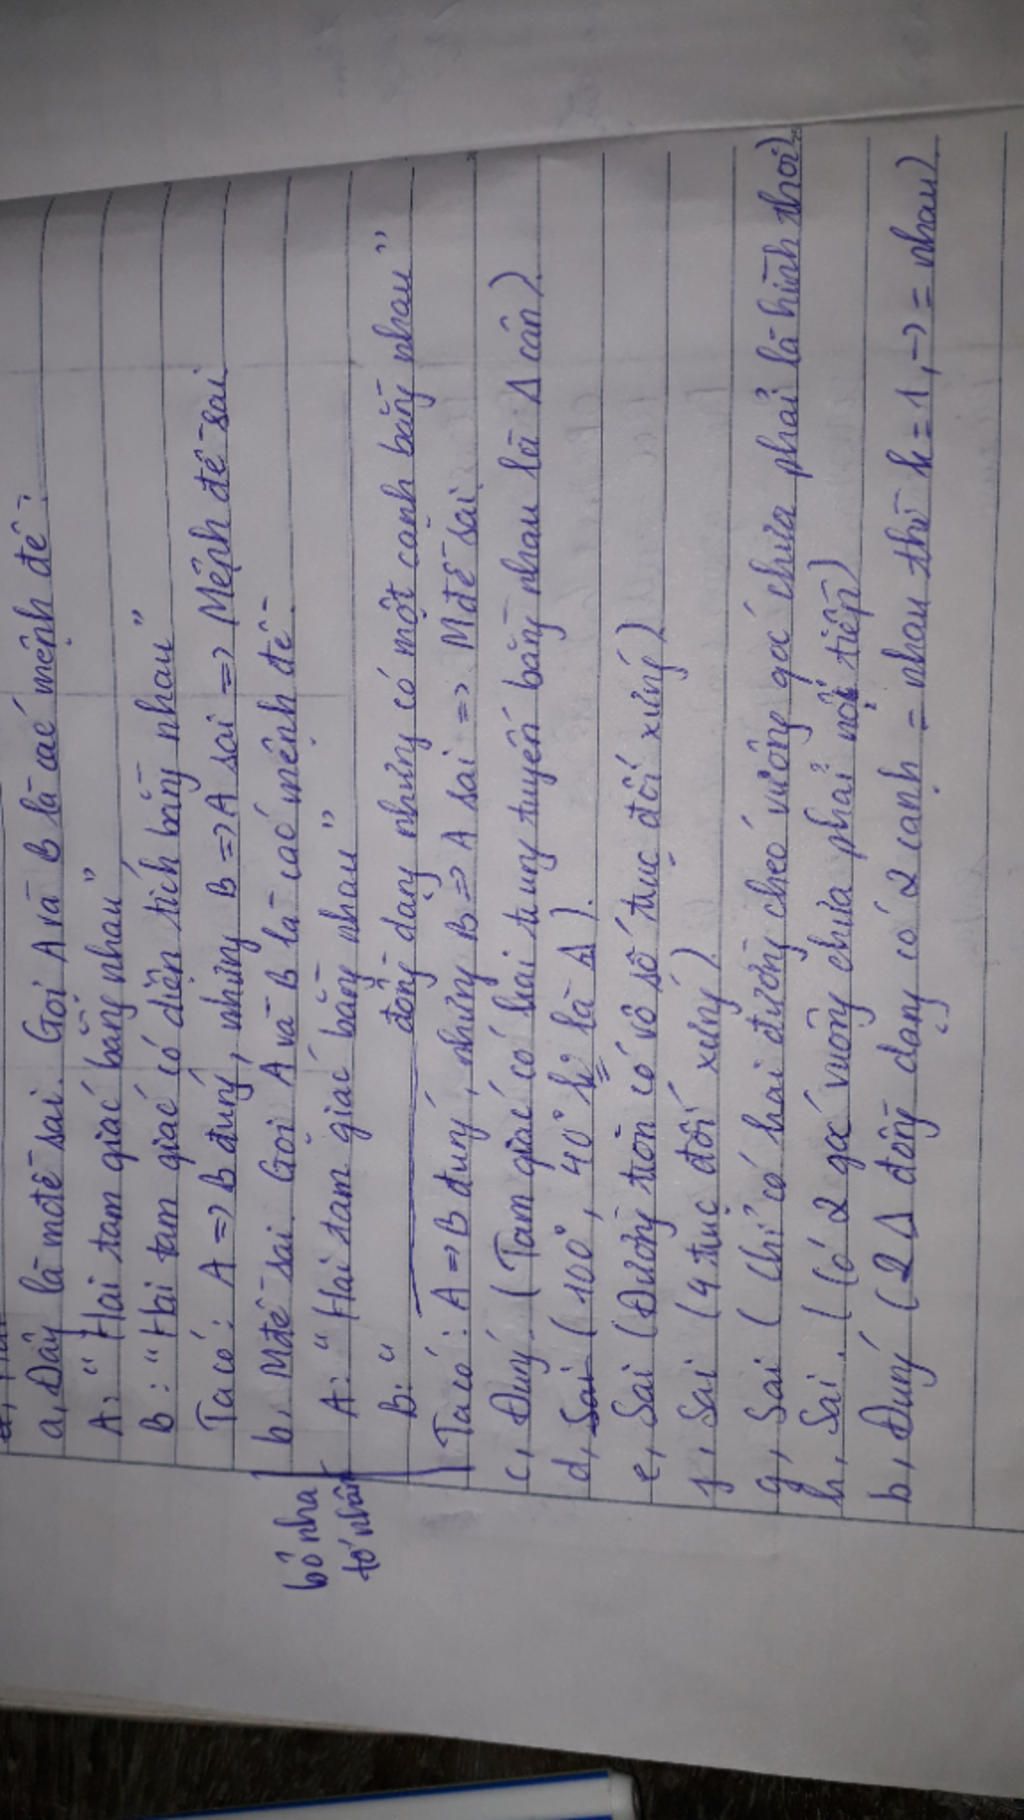 a, Đây là mđề sai. Gọi A và B là các mệnh đề:
A: " Hai tam giác bằng nhau "
B: " Hai tam giác có diện tích bằng nhau "
Ta có: A => B đúng, nhưng B => A sai => Mệnh đề sai.
b, Mđề sai. Gọi A và B là các mệnh đề
A: " Hai tam giác bằng nhau "
B: " đồng dạng nhưng có một cạnh bằng nhau "
Ta có: A => B đúng, nhưng B => A sai => Mđề sai.
bỏ nha
tớ nhầm
c, Đúng (Tam giác có hai trung tuyến bằng nhau là Δ cân).
d, Sai ( 100°, 40° là Δ ).
e, Sai (Đường tròn có vô số trục đối xứng)
f, Sai (4 trục đối xứng).
g, Sai ( Chỉ có hai đường chéo vuông góc chưa phải là hình thoi).
h, Sai. ( Có 2 góc vuông chưa phải nội tiếp)
b, Đúng ( 2 Δ đồng dạng có 2 cạnh = nhau thì k = 1, -> = nhau)